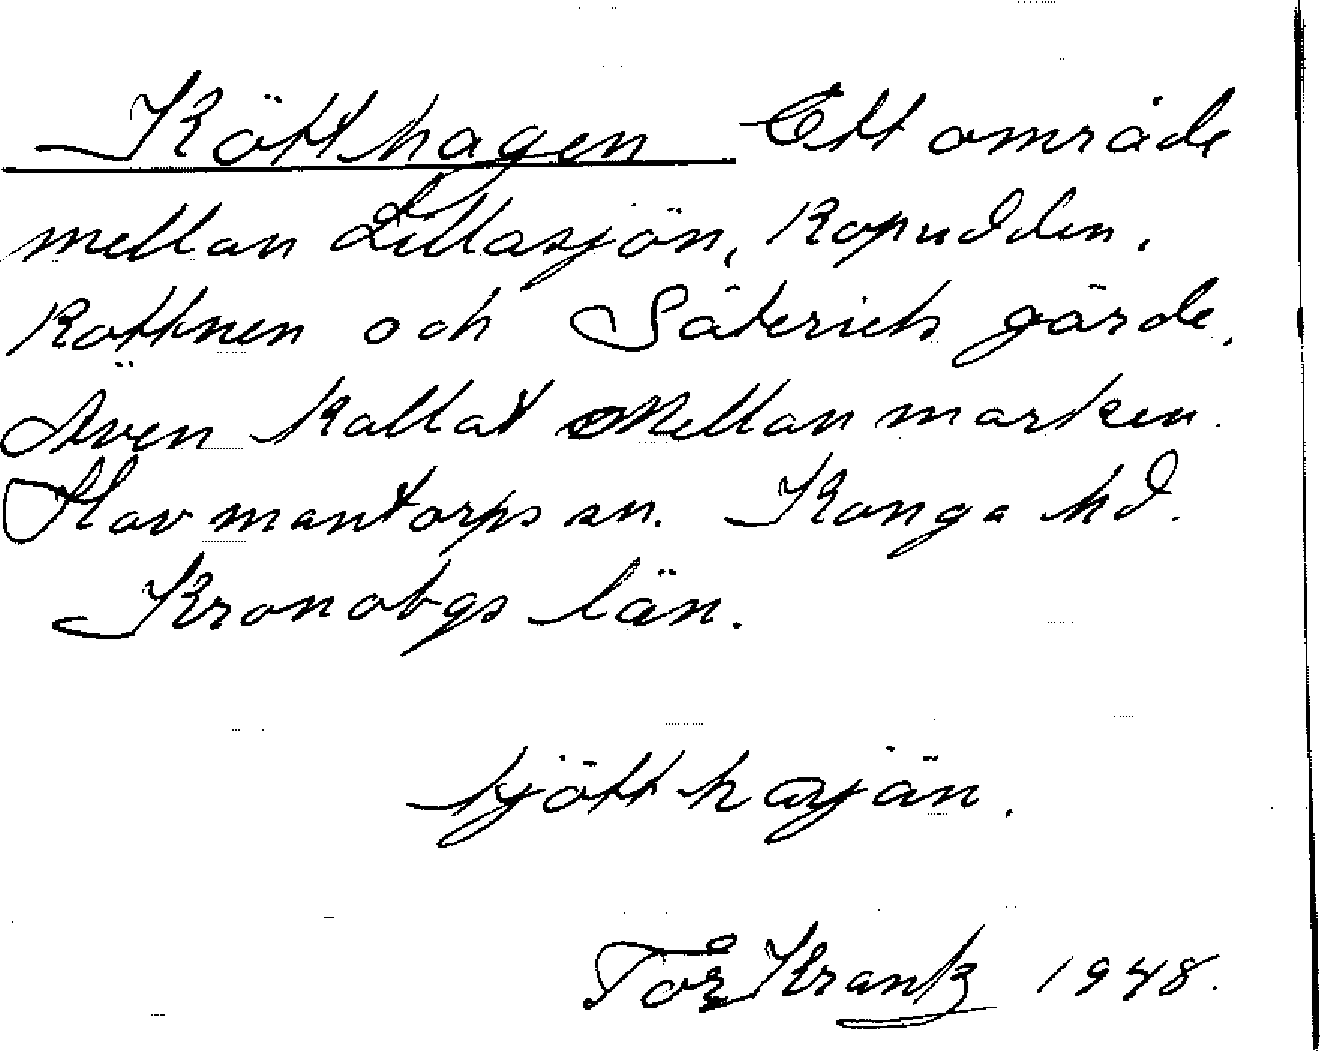 Kötthagen Ett område
mellan Lillasjön, Kopudden,
Rottnen och Säterichs gärde.
Även kallat Mellanmarken.
Hovmantorps sn. Konga hd.
Kronobgs län.
kjötthajän.
Tor Krantz 1948.